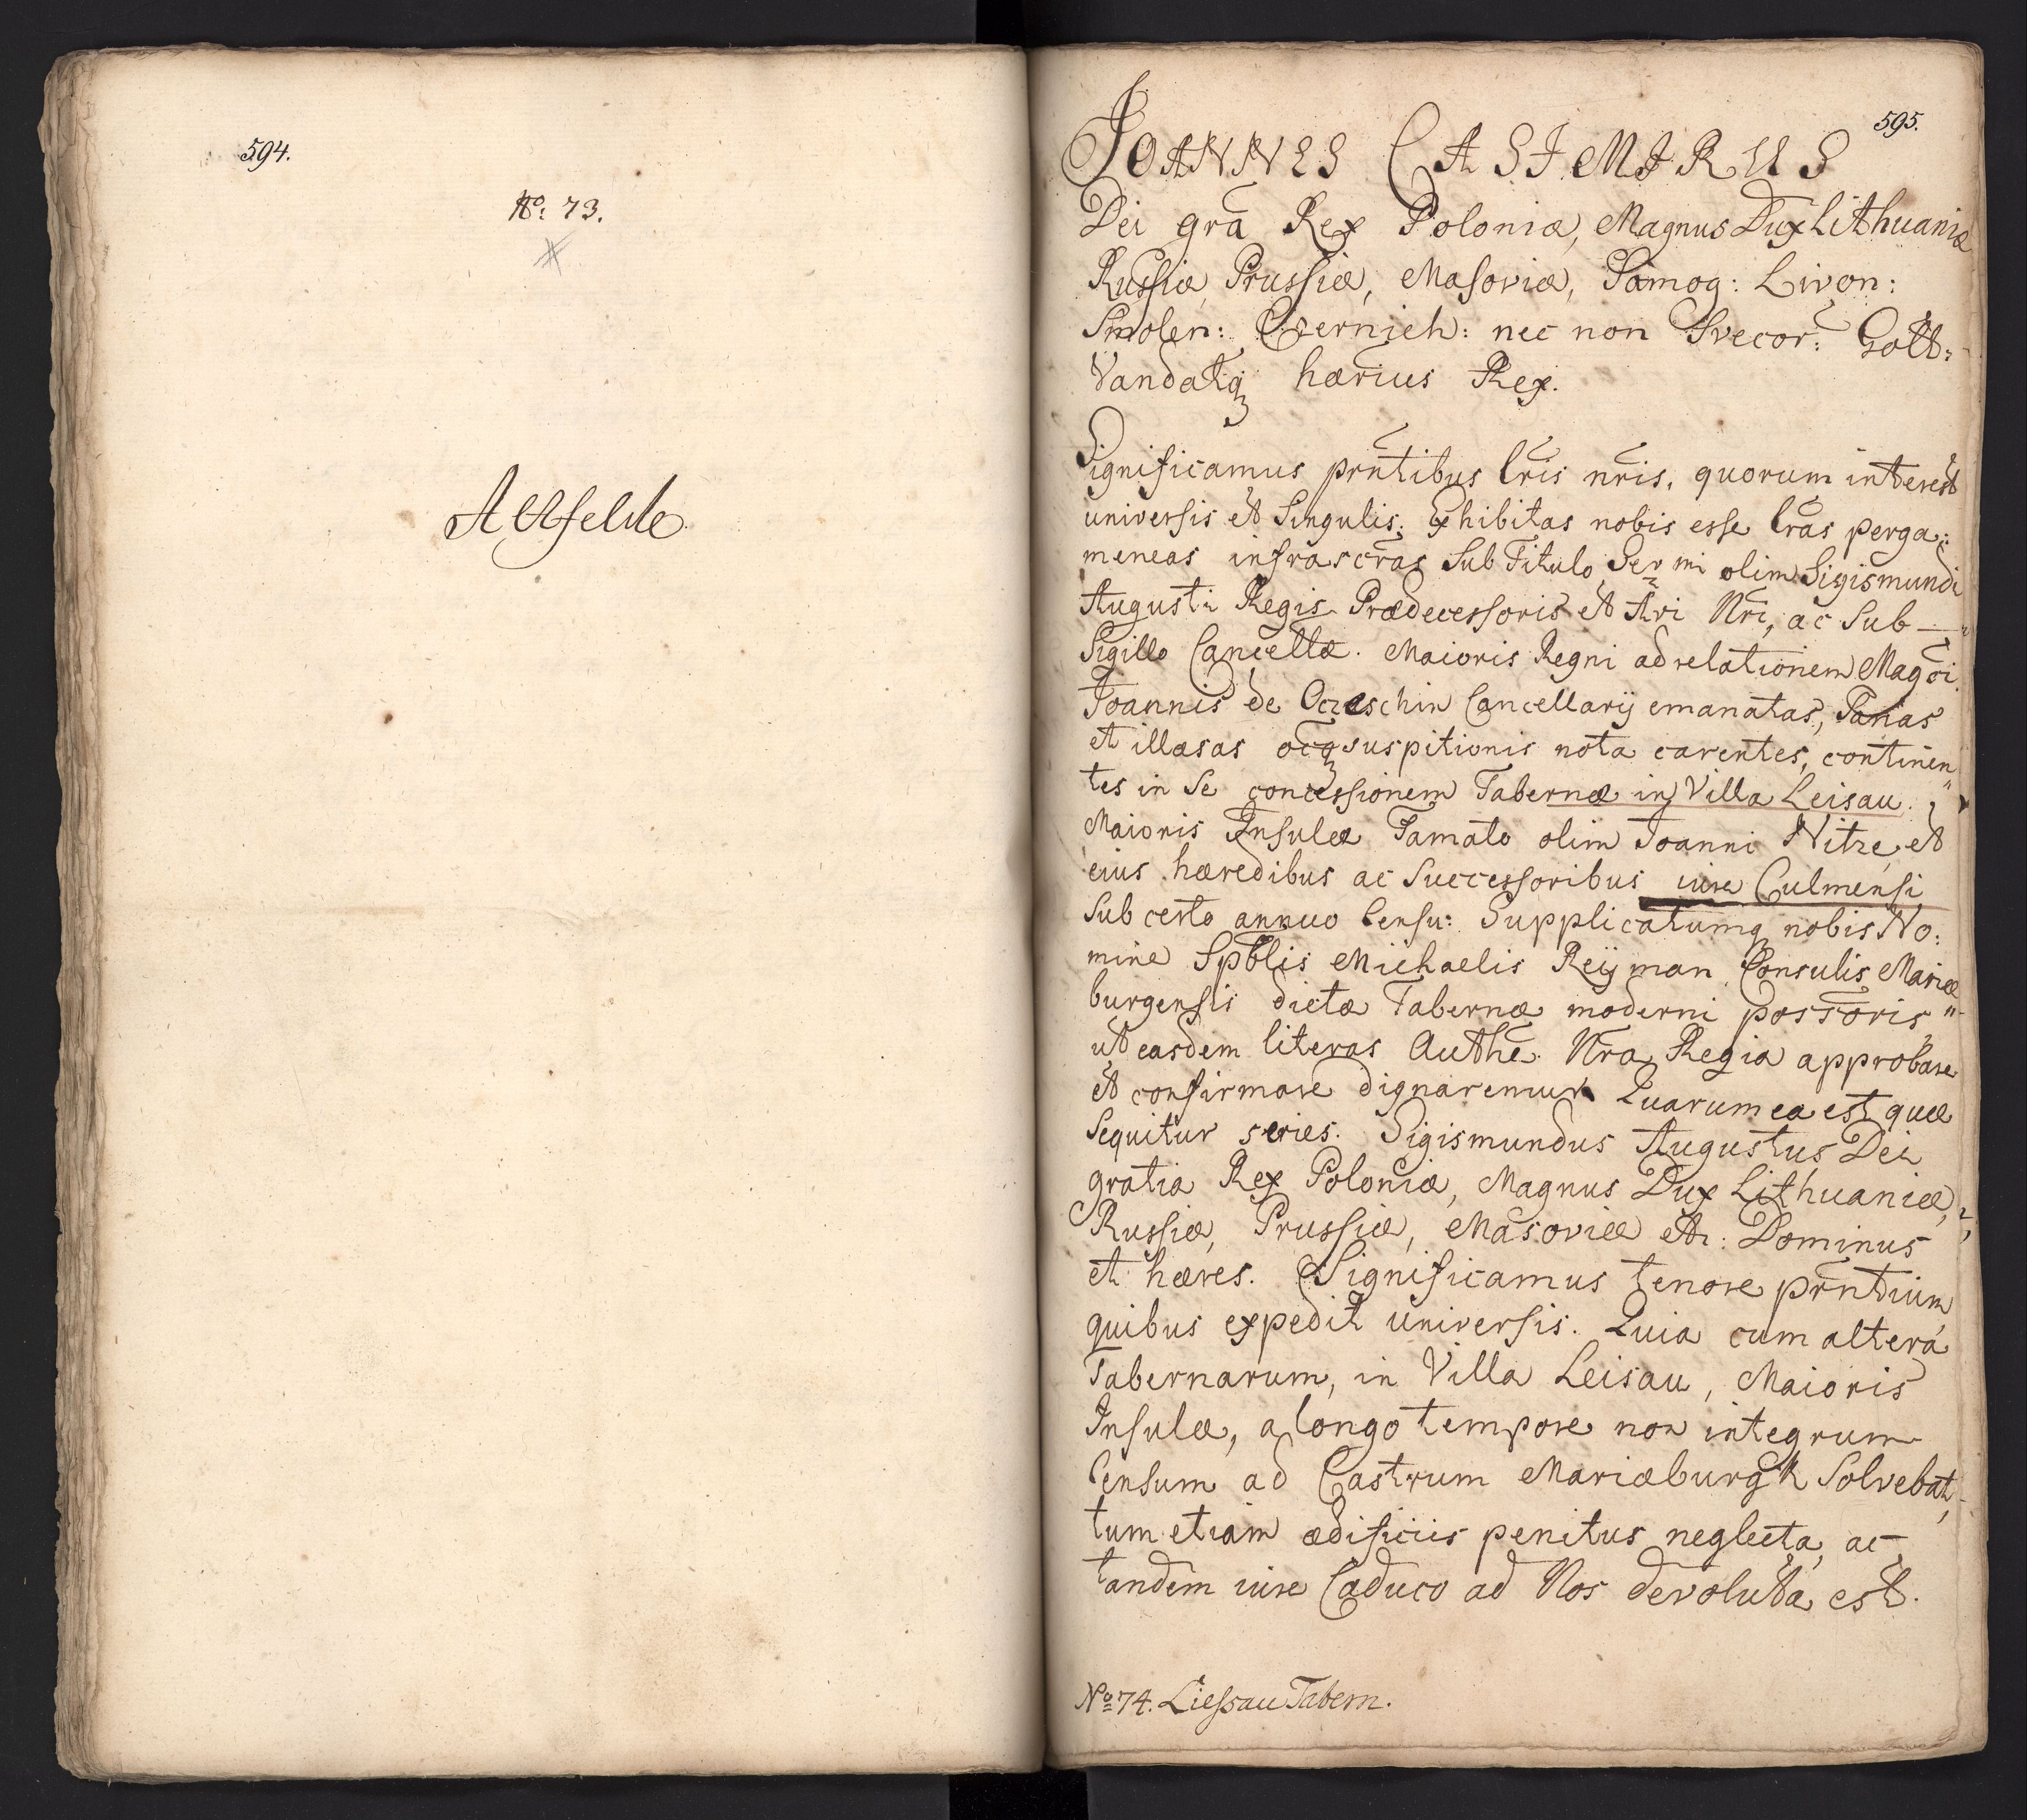 594.
No: 73.
Altfelde.
595.
JOANNES CASIMIRUS
Dei gra Rex Poloniæ, Magnus Dux Lithuaniæ
Russiæ, Prussiæ, Masoviæ, Samog: Livon:
Smolen: Czernich: nec non Svecor: Gott:
Vandalq hærius Rex.
Significamus prntibus lris nris, quorum interest
universis et Singulis. Exhibitas nobis esse lras perga:
meneas infrascras Sub Titulo Ser mi olim Sigismundi
Augusti Regis Prædecessoris et Avi Nri, ac Sub
Sigillo Cancellæ. Maioris Regni ad relationem Magci
Joannis de Oczeschin Cancellarij emanatas, Sanas
et illæsas ocq suspitionis nota carentes, continen
tes in Se concessionem Tabernæ in Villa Leisau.
Maioris Insulæ Famato olim Joanni Nitze, et
eius hæredibus ac Successoribus iure Culmensi
Sub certo annuo Censu: Supplicatumq nobis No:
mine Spblis Michaelis Reyman Consulis Mariæ
burgensis dictæ Tabernæ moderni possoris
ut easdem literas Authe. Nra Regia approbare
et confirmare dignaremur Quarum ea est quæ
Sequitur series. Sigismundus Augustus Dei
gratia Rex Poloniæ, Magnus Dux Lithuaniæ,
Russiæ, Prussiæ, Masoviæ etc: Dominus
et hæres. Significamus tenore prntium
quibus expedit universis. Quia cum altera
Tabernarum, in Villa Leisau, Maioris
Insulæ, a longo tempore non integrum
Censum ad Castrum Mariæburgk Solvebat,
tum etiam ædificiis penitus neglecta, ac
tandem iure Caduco ad Nos devoluta est.
No 74. Liessau Tabern.